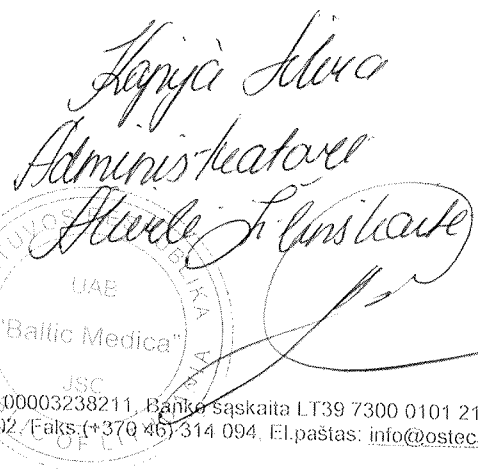 Kopija tikra
Administratorė
LIETUVOS RESPUBLIKA
UAB
"Baltic Medica"
JSC
00003238211, Banko sąskaita LT39 7300 0101 21
02, Faks.(+370 46) 314 094, El.paštas: info@ostec